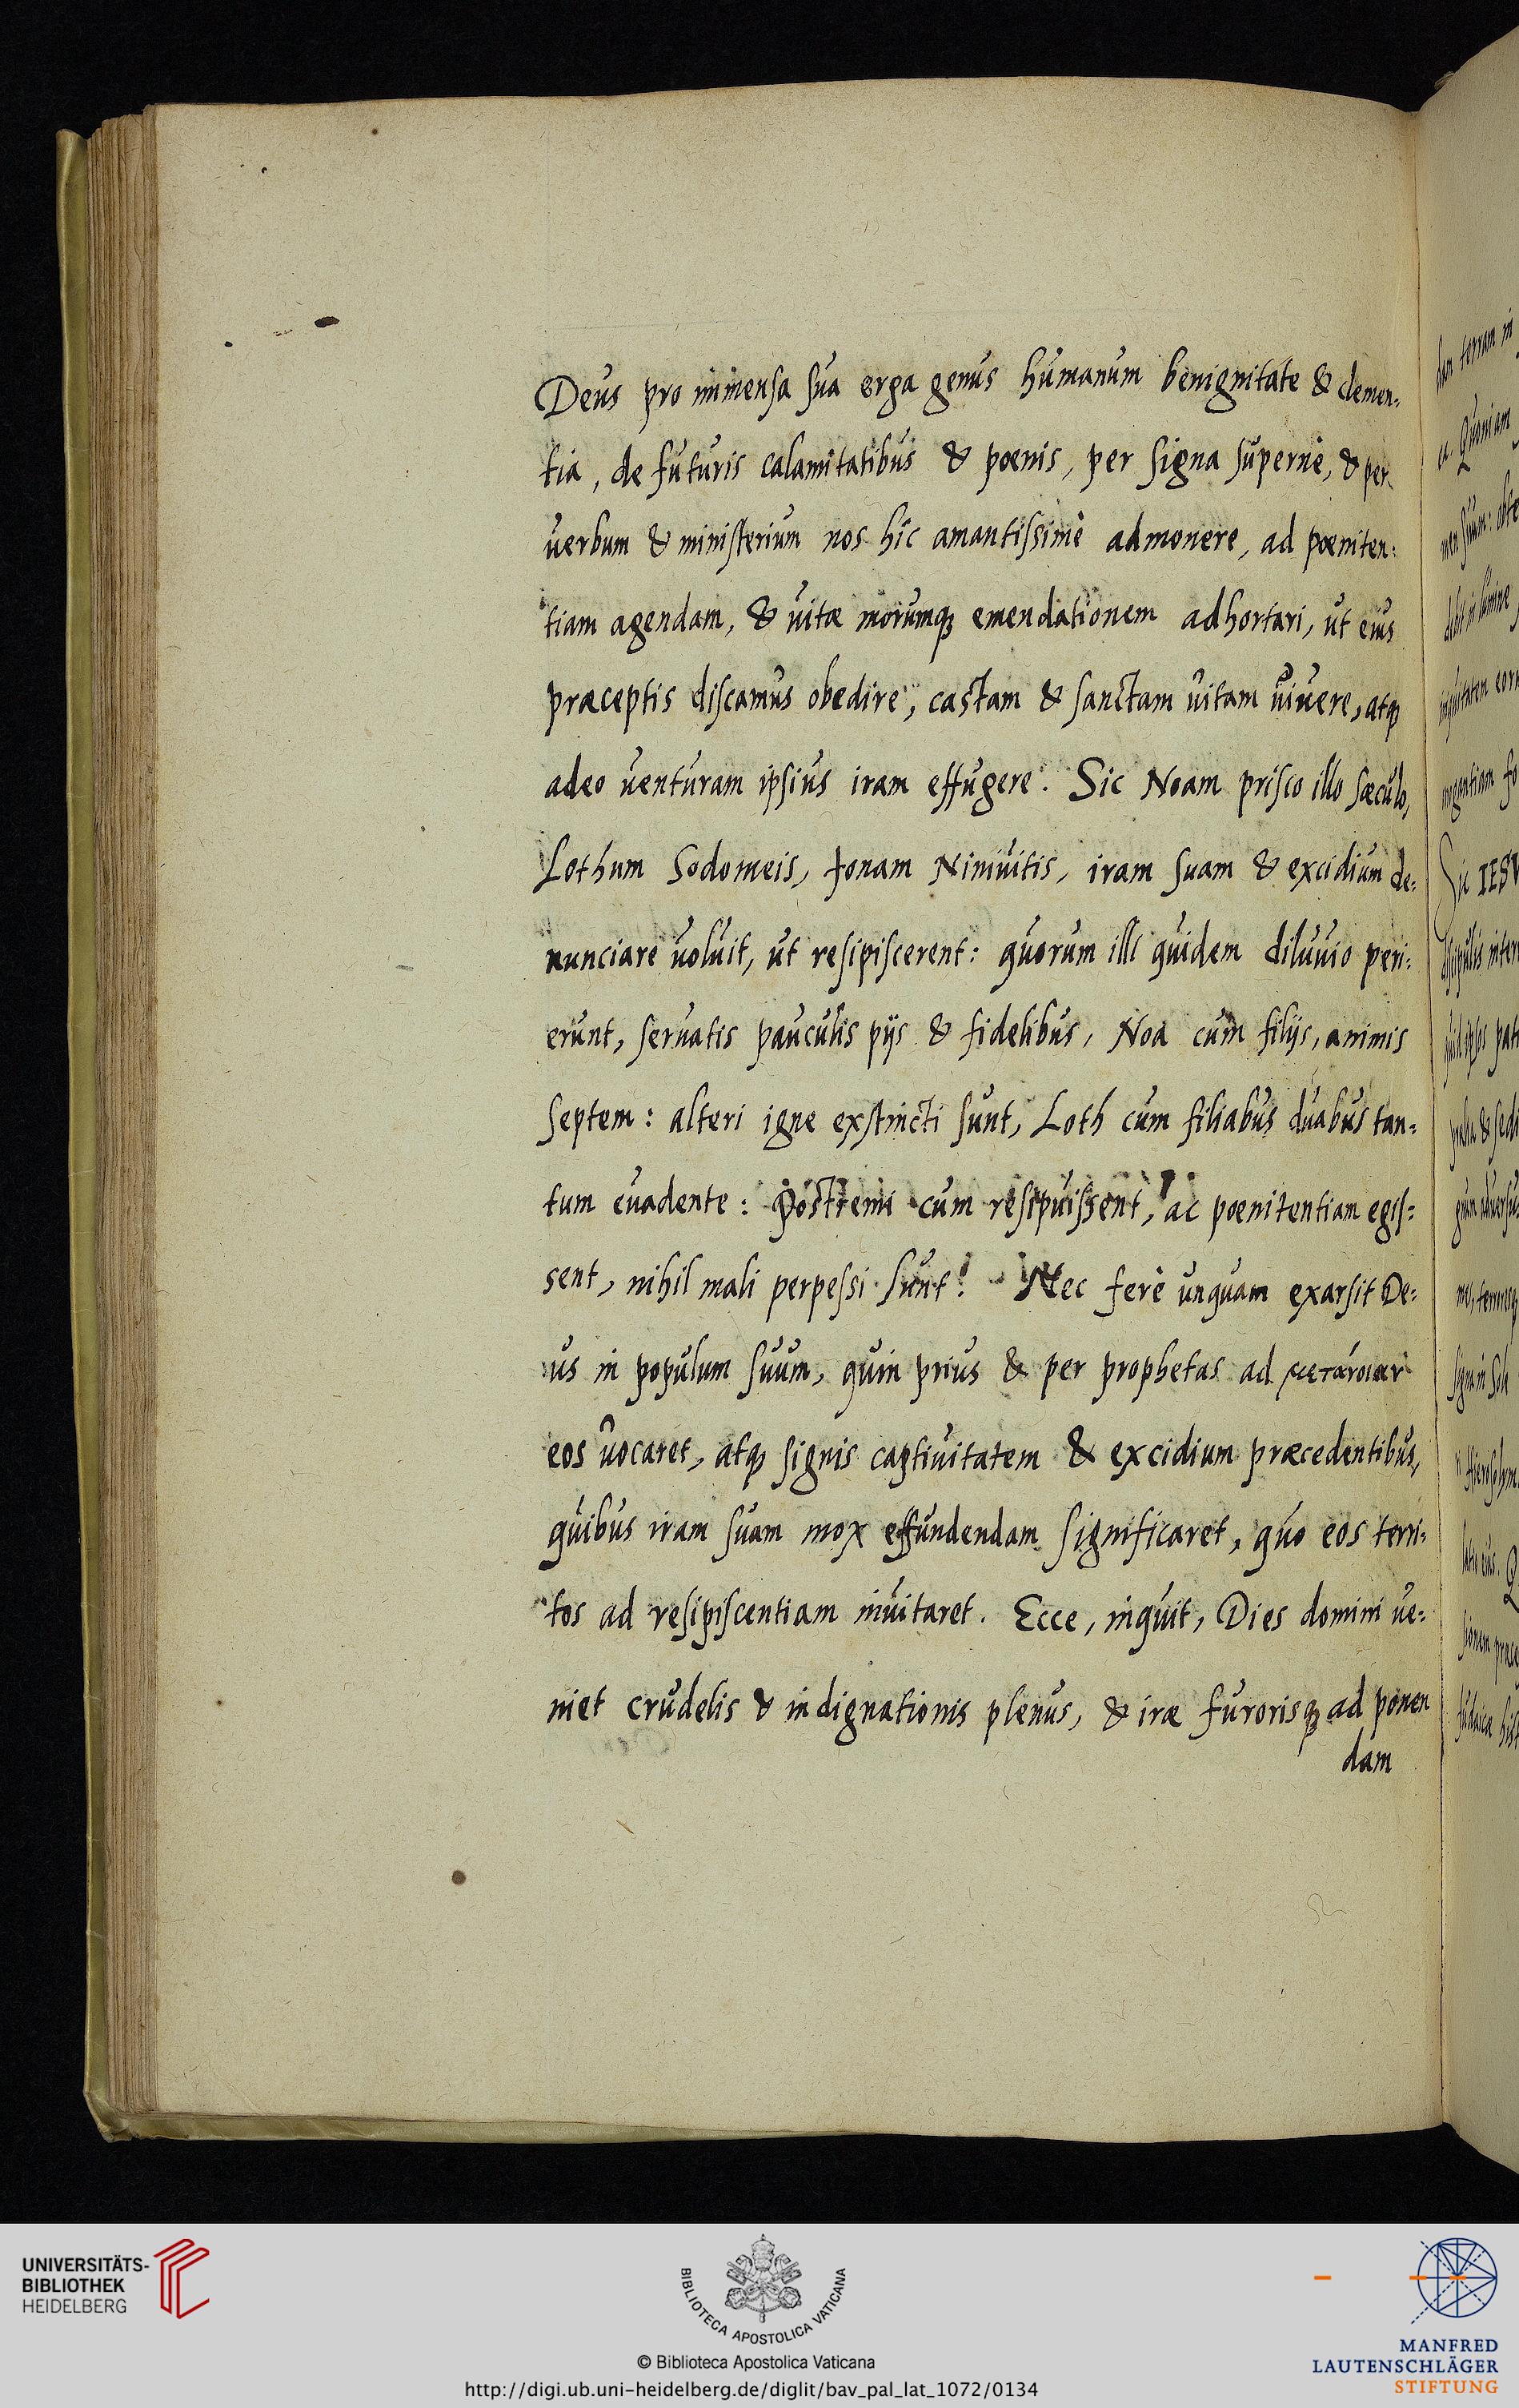 Deus pro immensa sua erga genus humanum benignitate & clemen-
tia, de futuris calamitatibus & poenis, per signa supernè, & per
verbum & ministerium nos hîc amantissimè admonere, ad poeniten-
tiam agendam, & vitæ morumq; emendationem adhortari, ut eius
præceptis discamus obedire, castam & sanctam vitam vivere, atq;
adeo venturam ipsius iram effugere. Sic Noam prisco illo sæculo,
Lothum Sodomeis, Jonam Ninivitis, iram suam & excidium de-
nunciare voluit, ut resipiscerent: quorum illi quidem diluvio peri-
erunt, servatis pauculis pijs & fidelibus, Noa cum filijs, animis
septem: alteri igne exstincti sunt, Loth cum filiabus duabus tan-
tum evadente: Postremi cum resipuissent, ac poenitentiam egis-
sent, nihil mali perpessi sunt. Nec ferè unquam exarsit De-
us in populum suum, quin prius & per prophetas ad μετάνοιαν
eos vocaret, atq; signis captivitatem & excidium præcedentibus,
quibus iram suam mox effundendam significaret, quo eos terri-
tos ad resipiscentiam invitaret. Ecce, inquit, Dies domini ve-
niet crudelis & indignationis plenus, & iræ furorisq; ad ponen
dam
dam terram in
a. Quoniam
Sic IESV
discipulis inter
signa in Sole
UNIVERSITÄTS-
BIBLIOTHEK
HEIDELBERG
BIBLIOTECA APOSTOLICA VATICANA
© Biblioteca Apostolica Vaticana
http://digi.ub.uni-heidelberg.de/diglit/bav_pal_lat_1072/0134
MANFRED
LAUTENSCHLÄGER
STIFTUNG